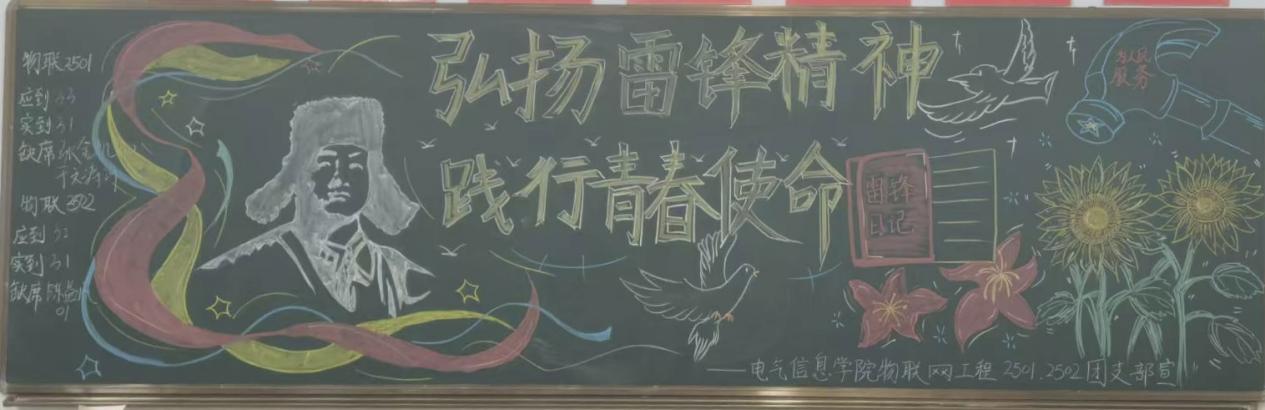 弘扬雷锋精神
践行青春使命
物联2501
应到33
实到31
缺席
物联2502
应到32
实到31
缺席
雷锋
日记
为人民
服务
——电气信息学院物联网工程 2501.2502团支部宣